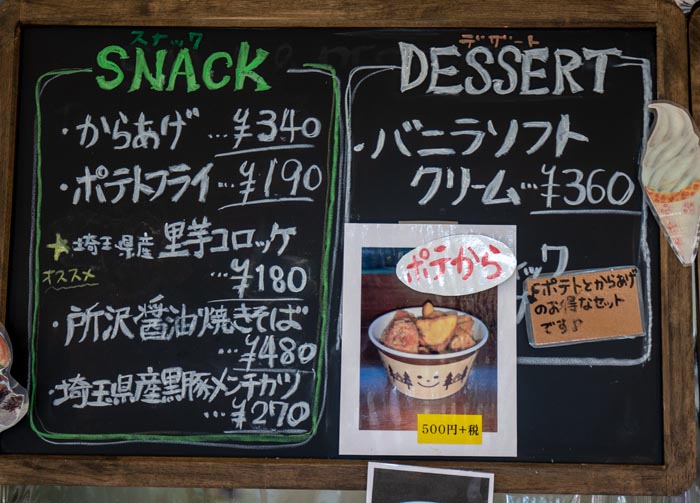 スナック
SNACK
・からあげ…¥340
・ポテトフライ…¥190
埼玉県産 里芋コロッケ
オススメ
…¥180
・所沢醤油焼きそば
…¥480
・埼玉県産黒豚メンチカツ
…¥270
デザート
DESSERT
・バニラソフト
クリーム…¥360
ック
ポテから
500円+税
♪ポテトとからあげ
のお得なセット
です♪